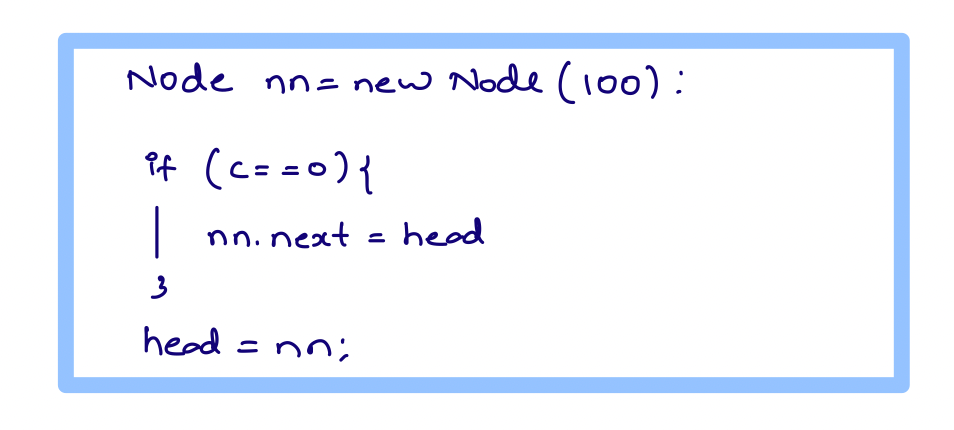 Node nn = new Node (100) :
if (c==0){
nn. next = head
}
head = nn;